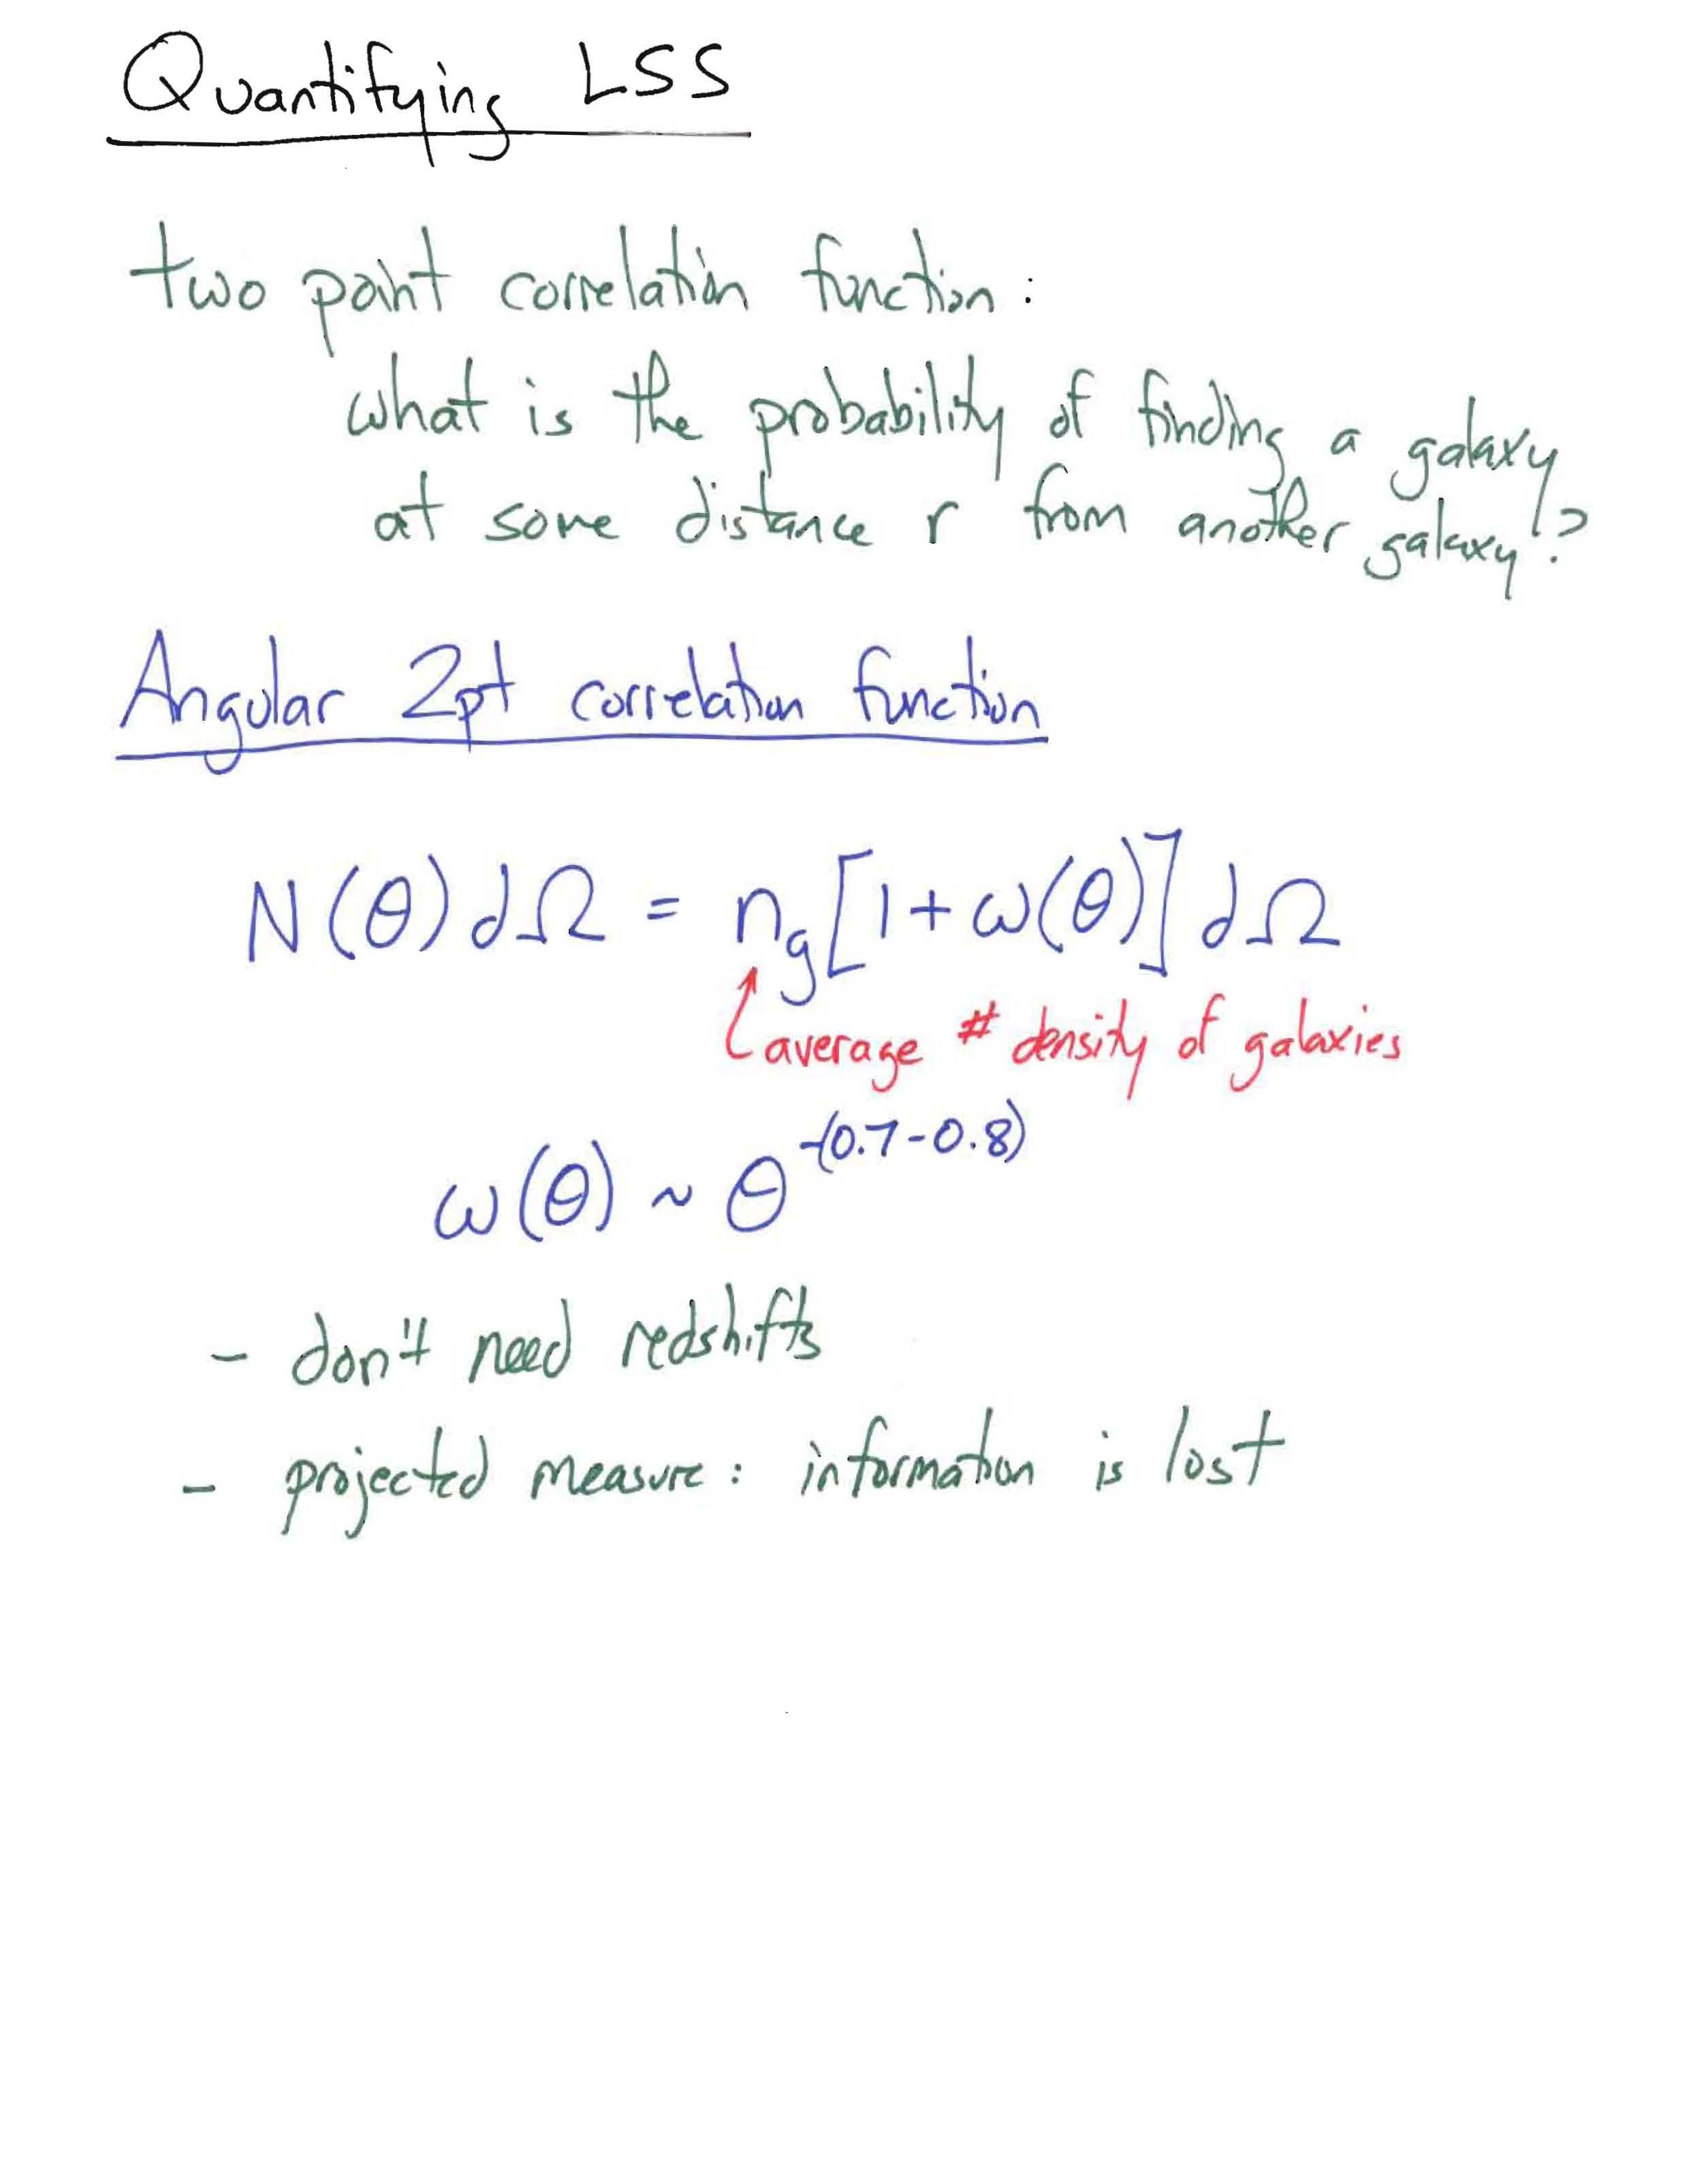 Quantifying LSS
two point correlation function:
what is the probability of finding a galaxy
at some distance r from another galaxy?
Angular 2pt correlation function
N(θ)dΩ = n_g[1+ω(θ)]dΩ
average # density of galaxies
ω(θ) ~ θ^-(0.7-0.8)
- don't need redshifts
- projected measure: information is lost